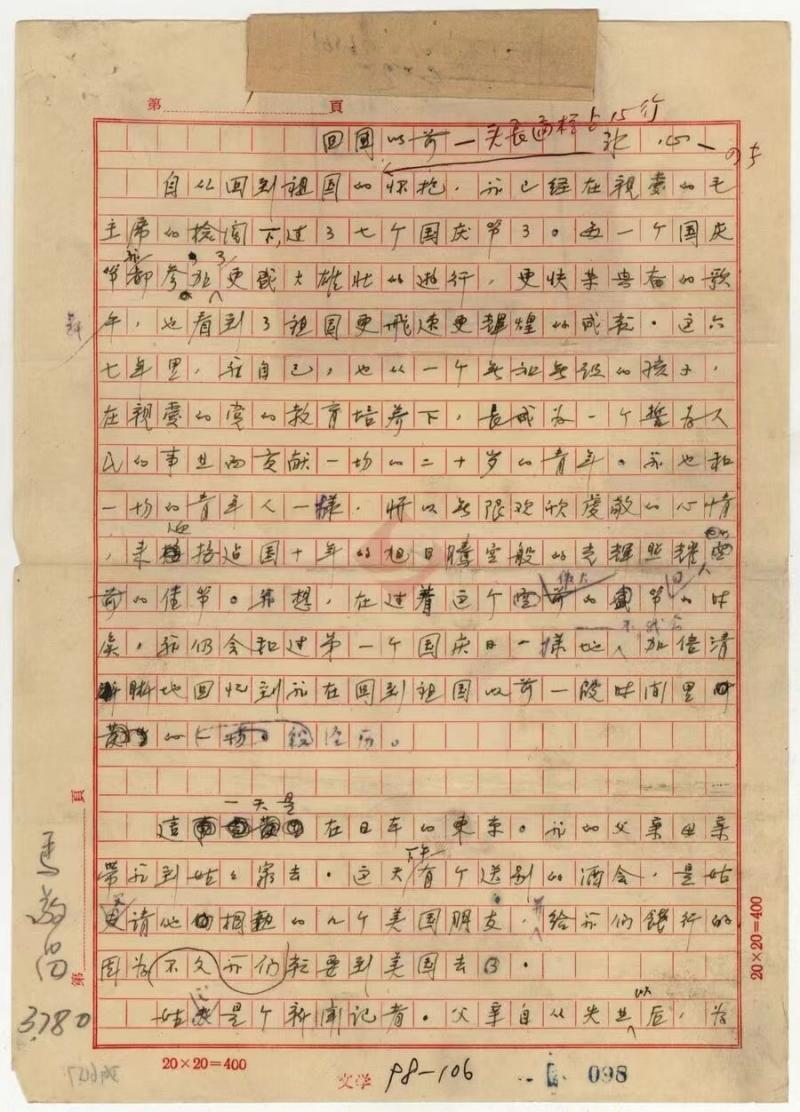 第 頁
回国以前 冰心
自从回到祖国的怀抱，我已经在親爱的毛
主席的检阅下，过了七个国庆节了。每一个国庆
节我都参加了更盛大雄壮的遊行，更快楽兴奋的歌
午，也看到了祖国更飛速更輝煌的成就。这六
七年里，我自己，也从一个無知無识的孩子，
在親爱的党的教育培养下，長成为一个誓为人
民的事业而贡献一切的二十岁的青年。我也和
一切的青年人一様，将以無限欢欣度敬的心情
，来迎接这国十年的旭日騰空般的光輝照耀
前的佳节。我想，在过着这个的节的时
候，我仍会和过第一个国庆日一様地，加倍清
晰地回忆到我在回到祖国以前一段时间里
的一段经历。
一天是
这在日本的東京。我的父亲母亲
帶我到姑姑家去。这天下午有个送别的酒会，是姑
請他们相熟的几个美国朋友，并给我们餞行的
因为不久我们就要到美国去了。
姑是个新闻记者。父亲自从失业以后，为
20×20=400
20×20=400
第 頁
3780
文学 P8-106
098